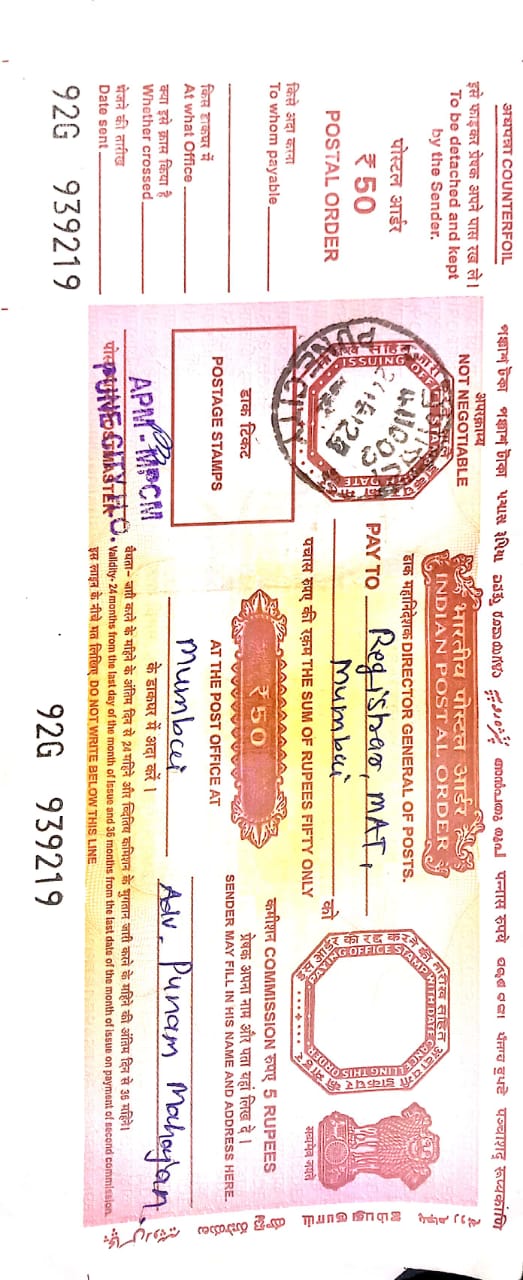 अधपन्ना COUNTERFOIL
इसे फाड़कर प्रेषक अपने पास रख ले।
To be detached and kept
by the Sender.
पोस्टल आर्डर
₹ 50
POSTAL ORDER
किसे अदा करना
To whom payable
किस डाकघर में
At what Office
क्या इसे क्रास किया है
Whether crossed
भेजने की तारीख
Date sent
92G 939219
পঞ্চাশ টকা পঞ্চাশ টাকা પચાસ રૂપિયા പന്നാസ रुपये
अपक्राम्य
NOT NEGOTIABLE
भारतीय पोस्टल आर्डर
INDIAN POSTAL ORDER
डाक महानिदेशक DIRECTOR GENERAL OF POSTS.
PAY TO Registrar, MAT,
Mumbai को
पचास रुपए की रक़म THE SUM OF RUPEES FIFTY ONLY
ISSUING OFFICE
PUNE CITY
411002
₹ 50
डाक टिकट
POSTAGE STAMPS
AT THE POST OFFICE AT
Mumbai
के डाकघर में अदा करें।
इस आर्डर को रद्द करने की तारीख सहित
PAYING OFFICE STAMP WITH DATE CANCELLING THIS ORDER
सत्यमेव जयते
कमीशन COMMISSION रुपए 5 RUPEES
प्रेषक अपना नाम और पता यहाँ लिख दे।
SENDER MAY FILL IN HIS NAME AND ADDRESS HERE.
Adv. Punam Mahajan.
APM - MPCM
PUNE CITY H.O.
POSTMASTER
वैधता- जारी करने के महिने के अंतिम दिन से 24 महिने और द्वितिय कमिशन के भुगतान जारी करने के महिने की अंतिम दिन से 36 महिने।
Validity- 24 months from the last day of the month of issue and 36 months from the last date of the month of issue on payment of second commission.
इस लाइन के नीचे मत लिखिए DO NOT WRITE BELOW THIS LINE
92G 939219